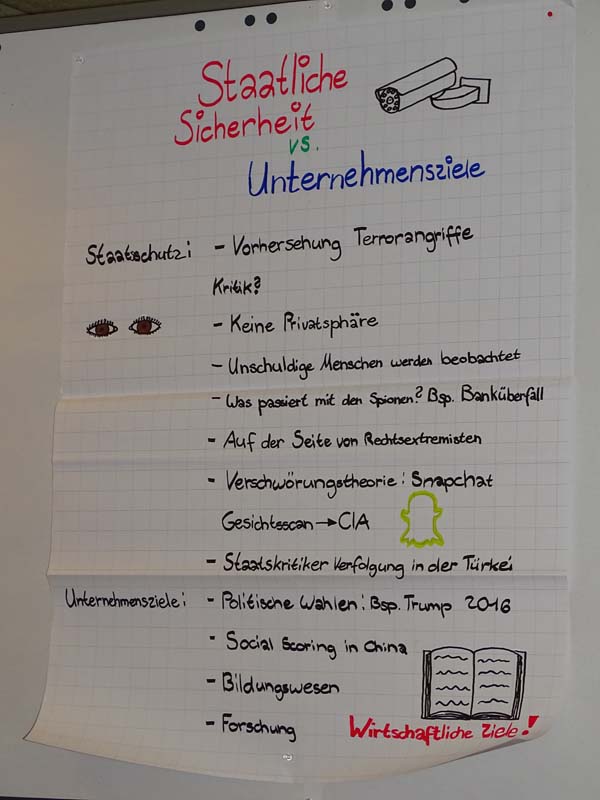 Staatliche
Sicherheit
vs.
Unternehmensziele
Staatsschutz: - Vorhersehung Terrorangriffe
Kritik?
- Keine Privatsphäre
- Unschuldige Menschen werden beobachtet
- Was passiert mit den Spionen? Bsp. Banküberfall
- Auf der Seite von Rechtsextremisten
- Verschwörungstheorie: Snapchat
Gesichtsscan → CIA
- Staatskritiker Verfolgung in der Türkei
Unternehmensziele: - Politische Wahlen: Bsp. Trump 2016
- Social Scoring in China
- Bildungswesen
- Forschung
Wirtschaftliche Ziele!